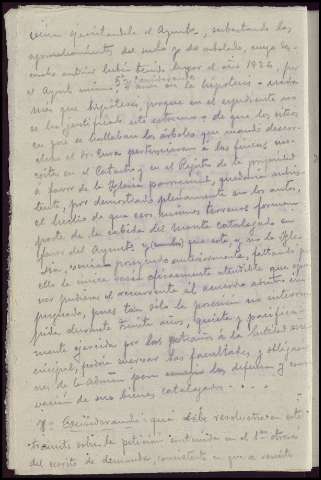 venía ejercitándola el Ayunto, subastando los
aprovechamientos del suelo y de arbolado, cuya su-
basta anterior había tenido lugar el año 1924, por
el Ayunt mismo. 5º Considerando: que aun en la hipótesis - nada
mas que hipótesis, porque en el expediente no
se ha justificado este extremo - de que los sitios
en que se hallaban los árboles que mandó descor-
tezar el Sr. Cura pertenecieran a las fincas ins-
critas en el Catastro y en el Registro de la propiedad
a favor de la Iglesia parroquial, quedaría subsis-
tente, por demostrado plenamente en los autos,
el hecho de que esos mismos terrenos forman
parte de la cabida del monte catalogado en
favor del Ayunto, y que este, y no la Igle-
sia, venía poseyendo anteriormente, faltando
ello la única razón eficazmente atendible que opo-
ner pudiera el recurrente al acuerdo
impugnado, pues tan solo la posesión no interrum-
pida durante treinta años, quieta y pacífica-
mente ejercida por los extraños a la Entidad mu-
nicipal, podría enervar las facultades y obligacio-
nes de la Admón para la defensa y conser-
vación de sus bienes catalogados. - . . .
Considerando: que debe resolverse en este
trámite sobre la petición contenida en el 1er otrosí
del escrito de demanda, consistente en que se remita